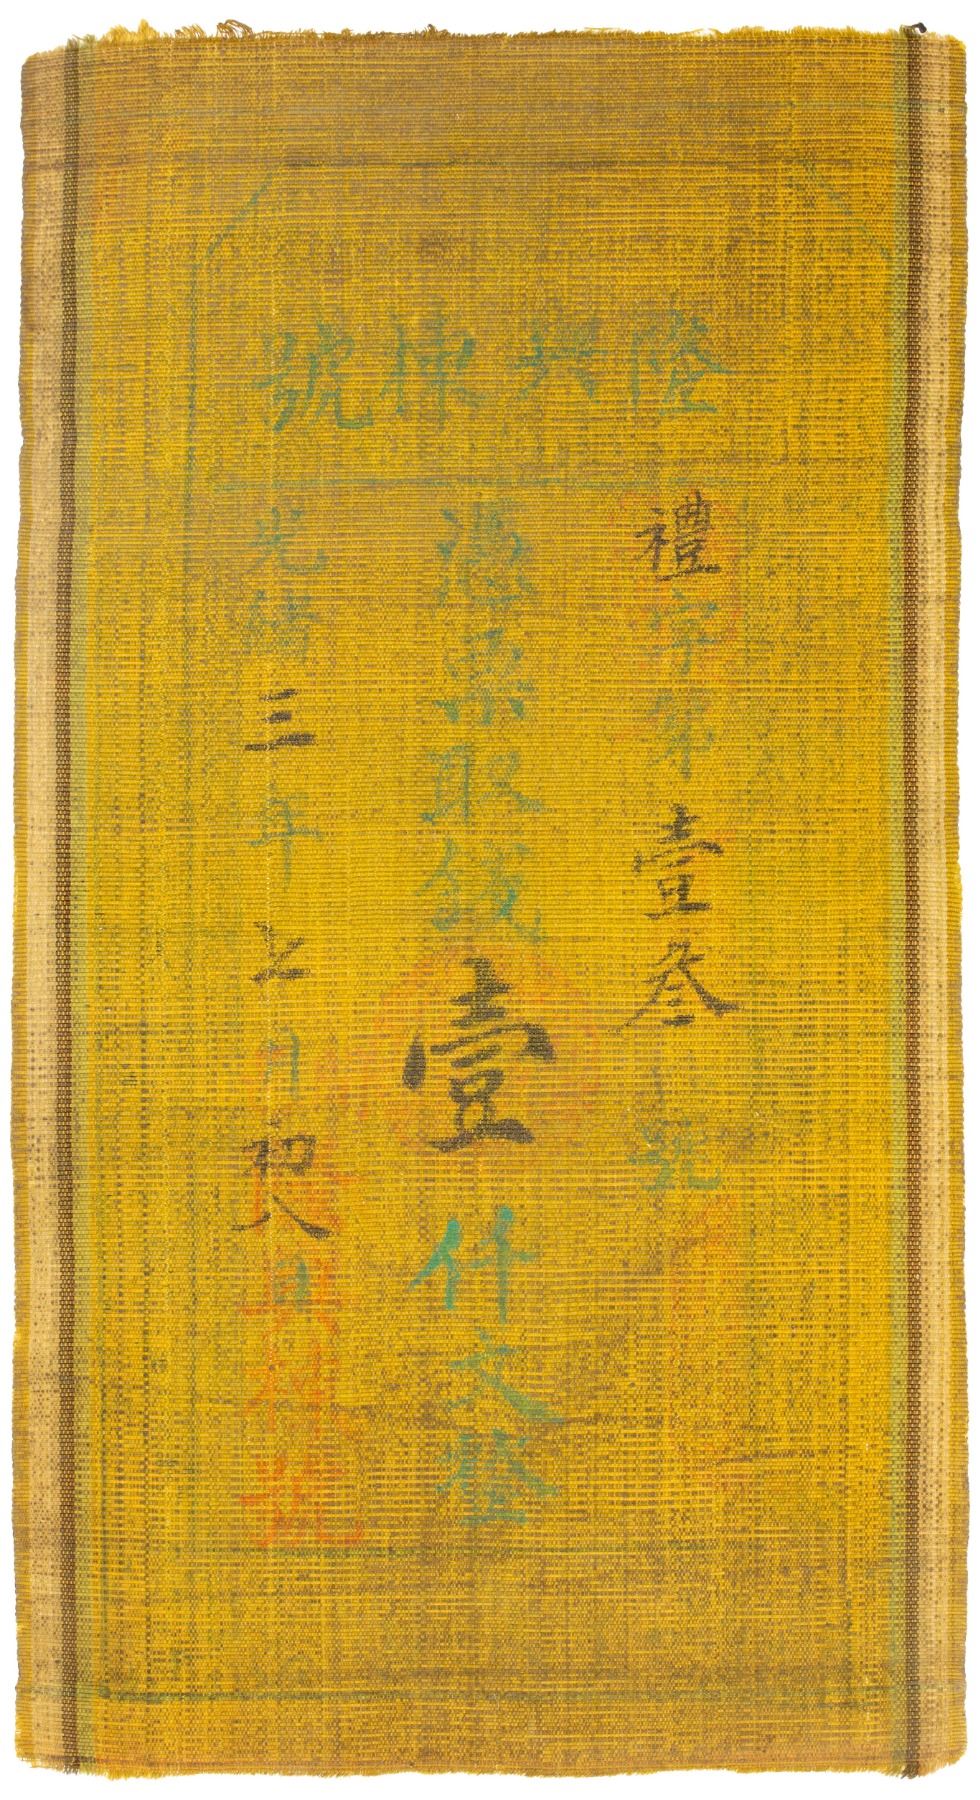 隆興棟號
禮字第壹叁號
憑票取錢壹仟文整
光緒三年七月初八日